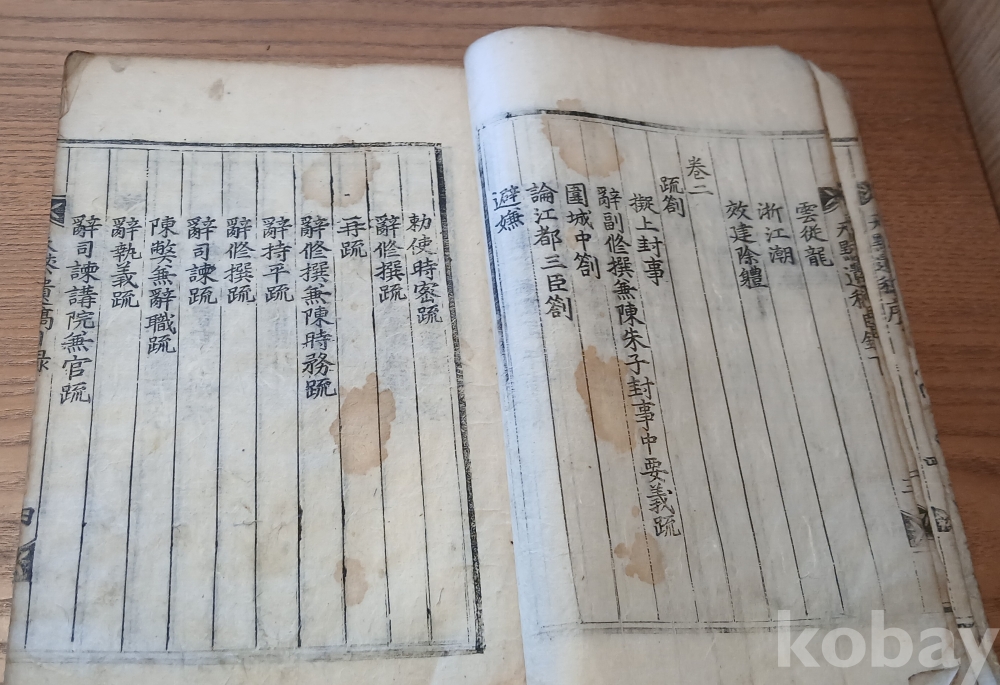 雲從龍
浙江潮
效建除體
卷二
疏劄
擬上封事
辭副修撰兼陳朱子封事中要義疏
圍城中劄
論江都三臣劄
避嫌
勅使時密疏
辭修撰疏
再疏
辭修撰兼陳時務疏
辭持平疏
辭修撰疏
辭司諫疏
陳弊兼辭職疏
辭執義疏
辭司諫講院兼官疏
kobay